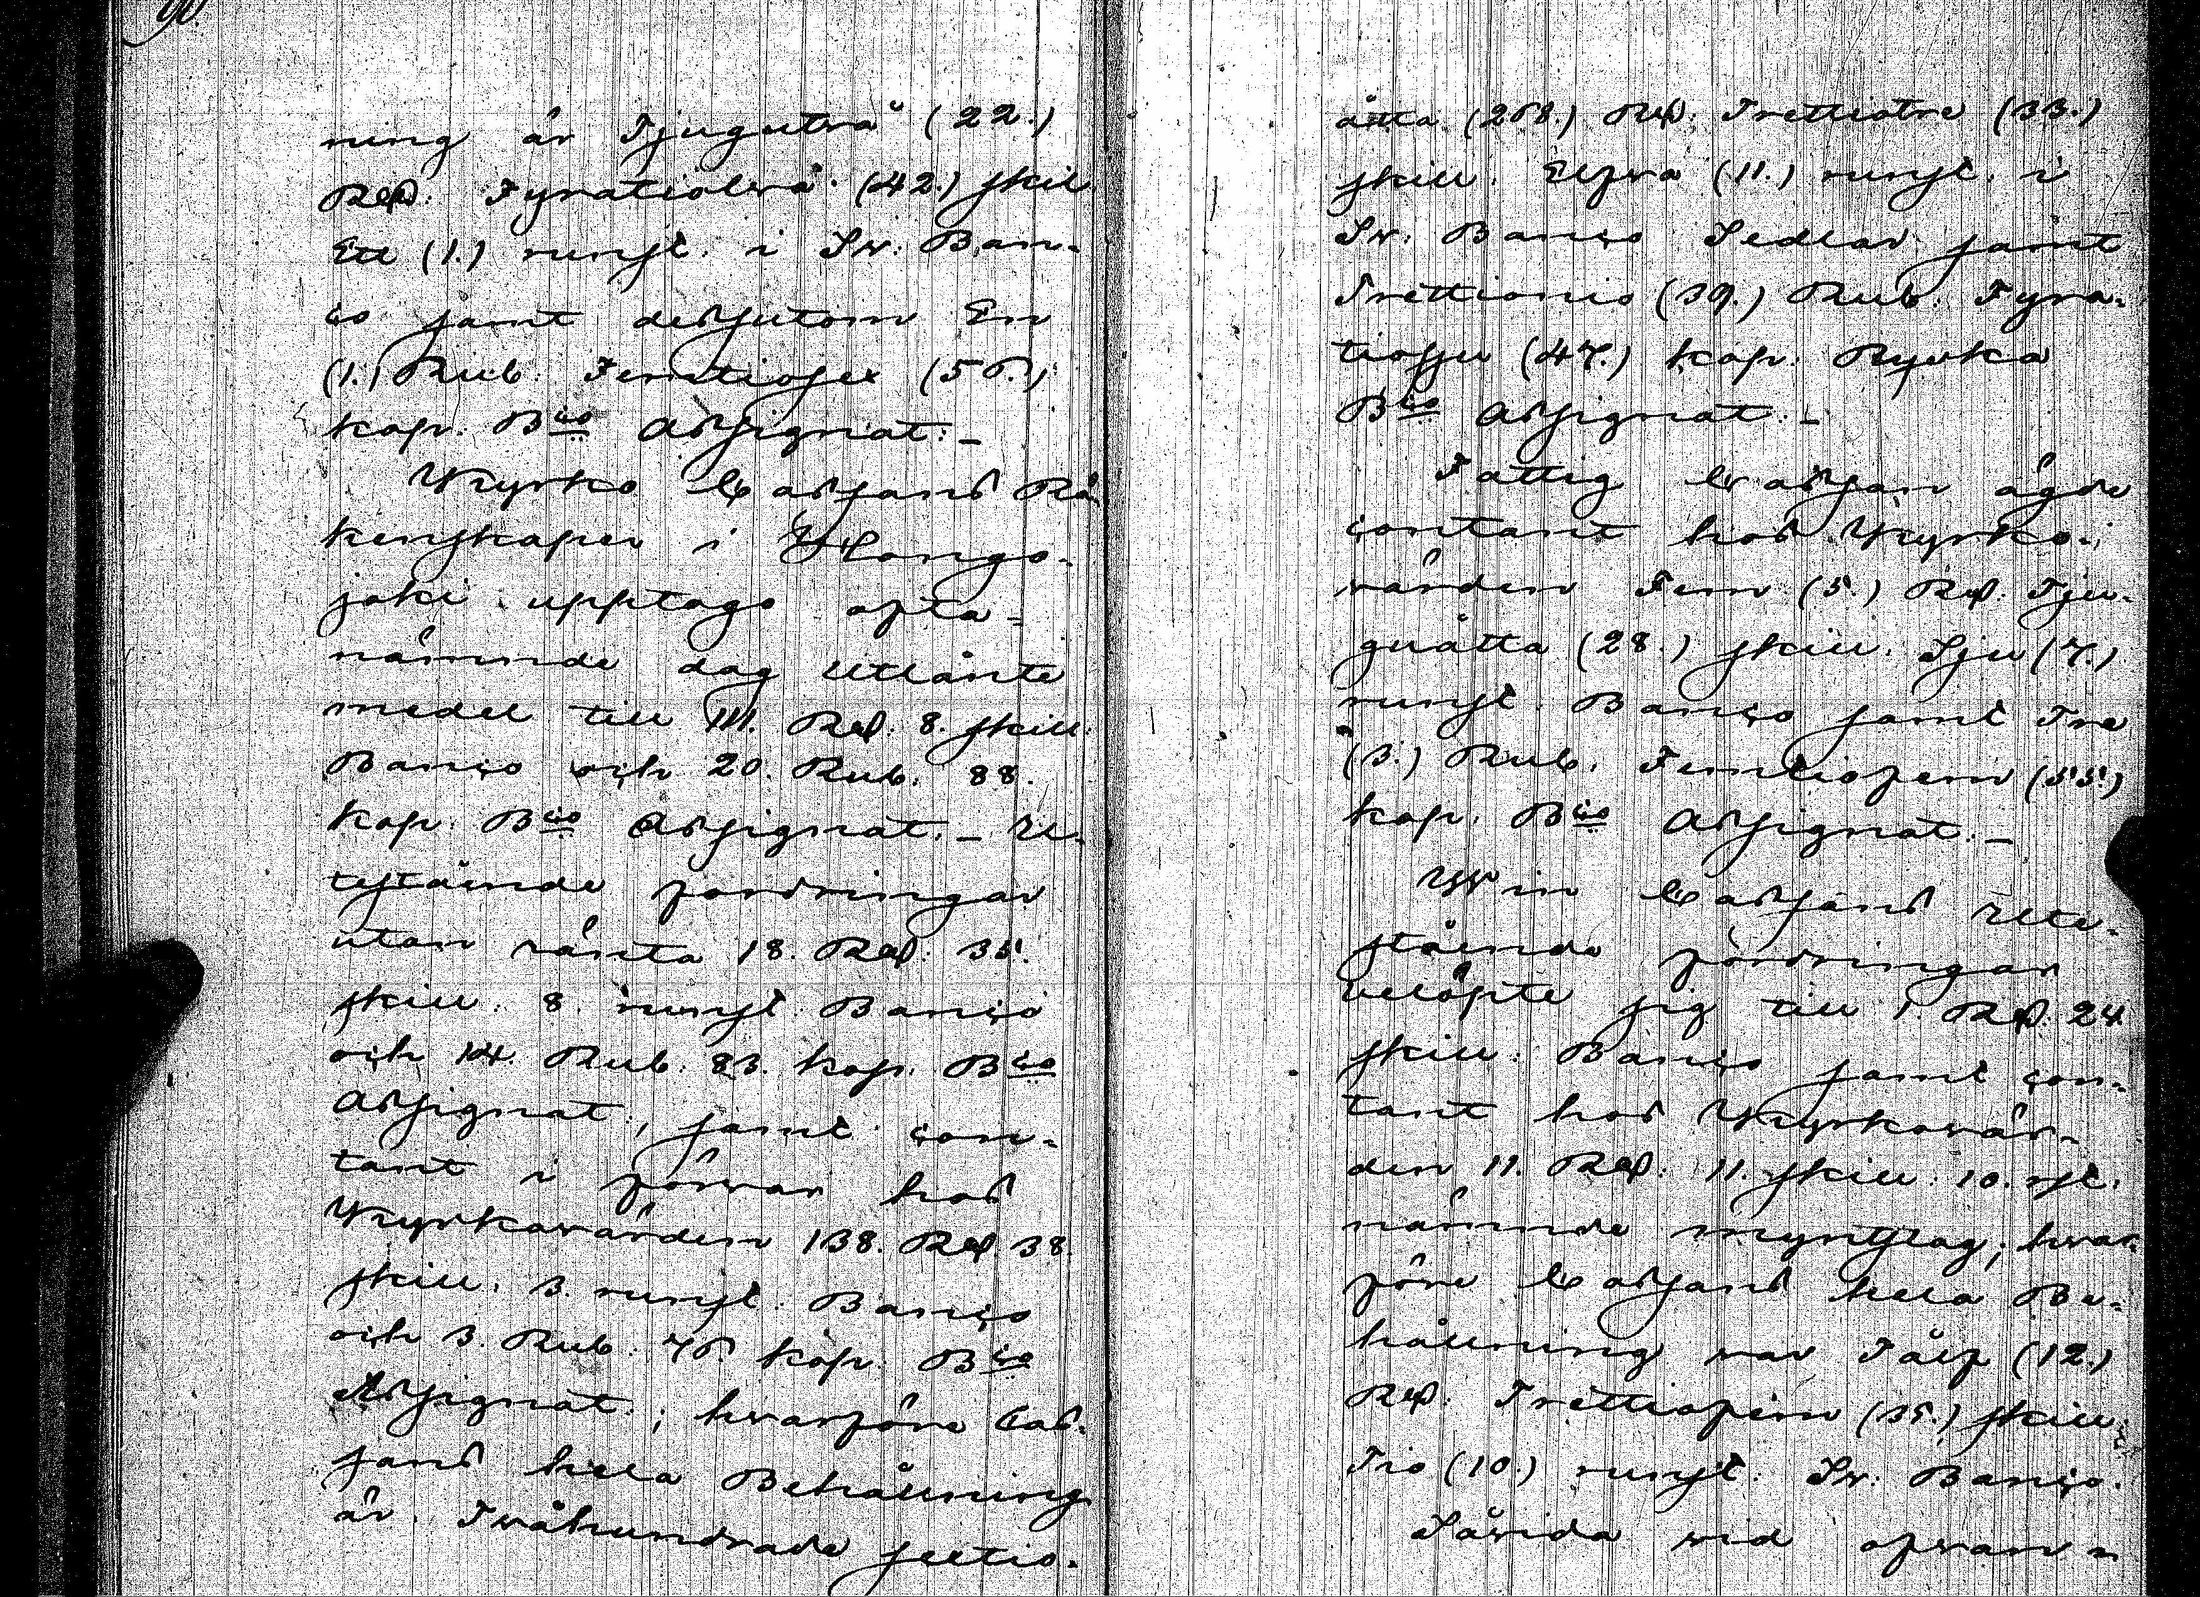 90.
ning är Tjugutvå (22.)
Rd. Fyratiotvå (42.) skil
Ett (1.) runst. i Sv: Ban-
co jämt dessutom En
(1.) Rub. Femtiosex (56.)
kop. Bco Assignat: -
Kyrko Cassans Rä-
kenskaper i
joki upptogo ofta-
nämnde dag utlånte
medel till 111. Rd. 8. skill
Banco och 20. Rub. 88.
kop. Bco Assignat. - Ute-
stående fordringar
utan ränta 18. Rd. 35.
skill. 8. runst Banco
och 14. Rub. 83. kop. Bco
Assignat, jämt con-
tant i förvar hos
Kyrkovärden 138. Rd. 38.
skill. 3. runst. Banco
och 3. Rub. 76. kop. Bco
Assignat.; hvarföre Cas-
sans hela Behållning
är Tvåhundrade sextio-
åtta (268.) Rd. Trettiotre (33.)
skill. Elfva (11.) runst. i
Sv. Banco Sedlar jämt
Trettionio (39.) Rub. Fyra-
tiosju (47.) kop. Ryska
Bco Assignat: -
Fattig Cassan ägde
contant hos Kyrko-
värden Fem (5.) Rd. Tju-
guåtta (28.) skill. Sju (7.)
runst. Banco jämt Tre
(3.) Rub. Femtiofem (55.)
kop. Bco Assignat. -
Win Cassans ute-
stående fordringar
belöpte sig till 1. Rd. 24
skill. Banco jämt con-
tant hos Kyrkovär-
den 11. Rd. 11. skill. 10. rst.
nämnde myntslag; hvar-
före Cassans hela Be-
hållning var Tolf (12.)
Rd. Trettiofem (35.) skill.
Tio (10.) runst. Sv. Banco.
Såvida vid ofvan-